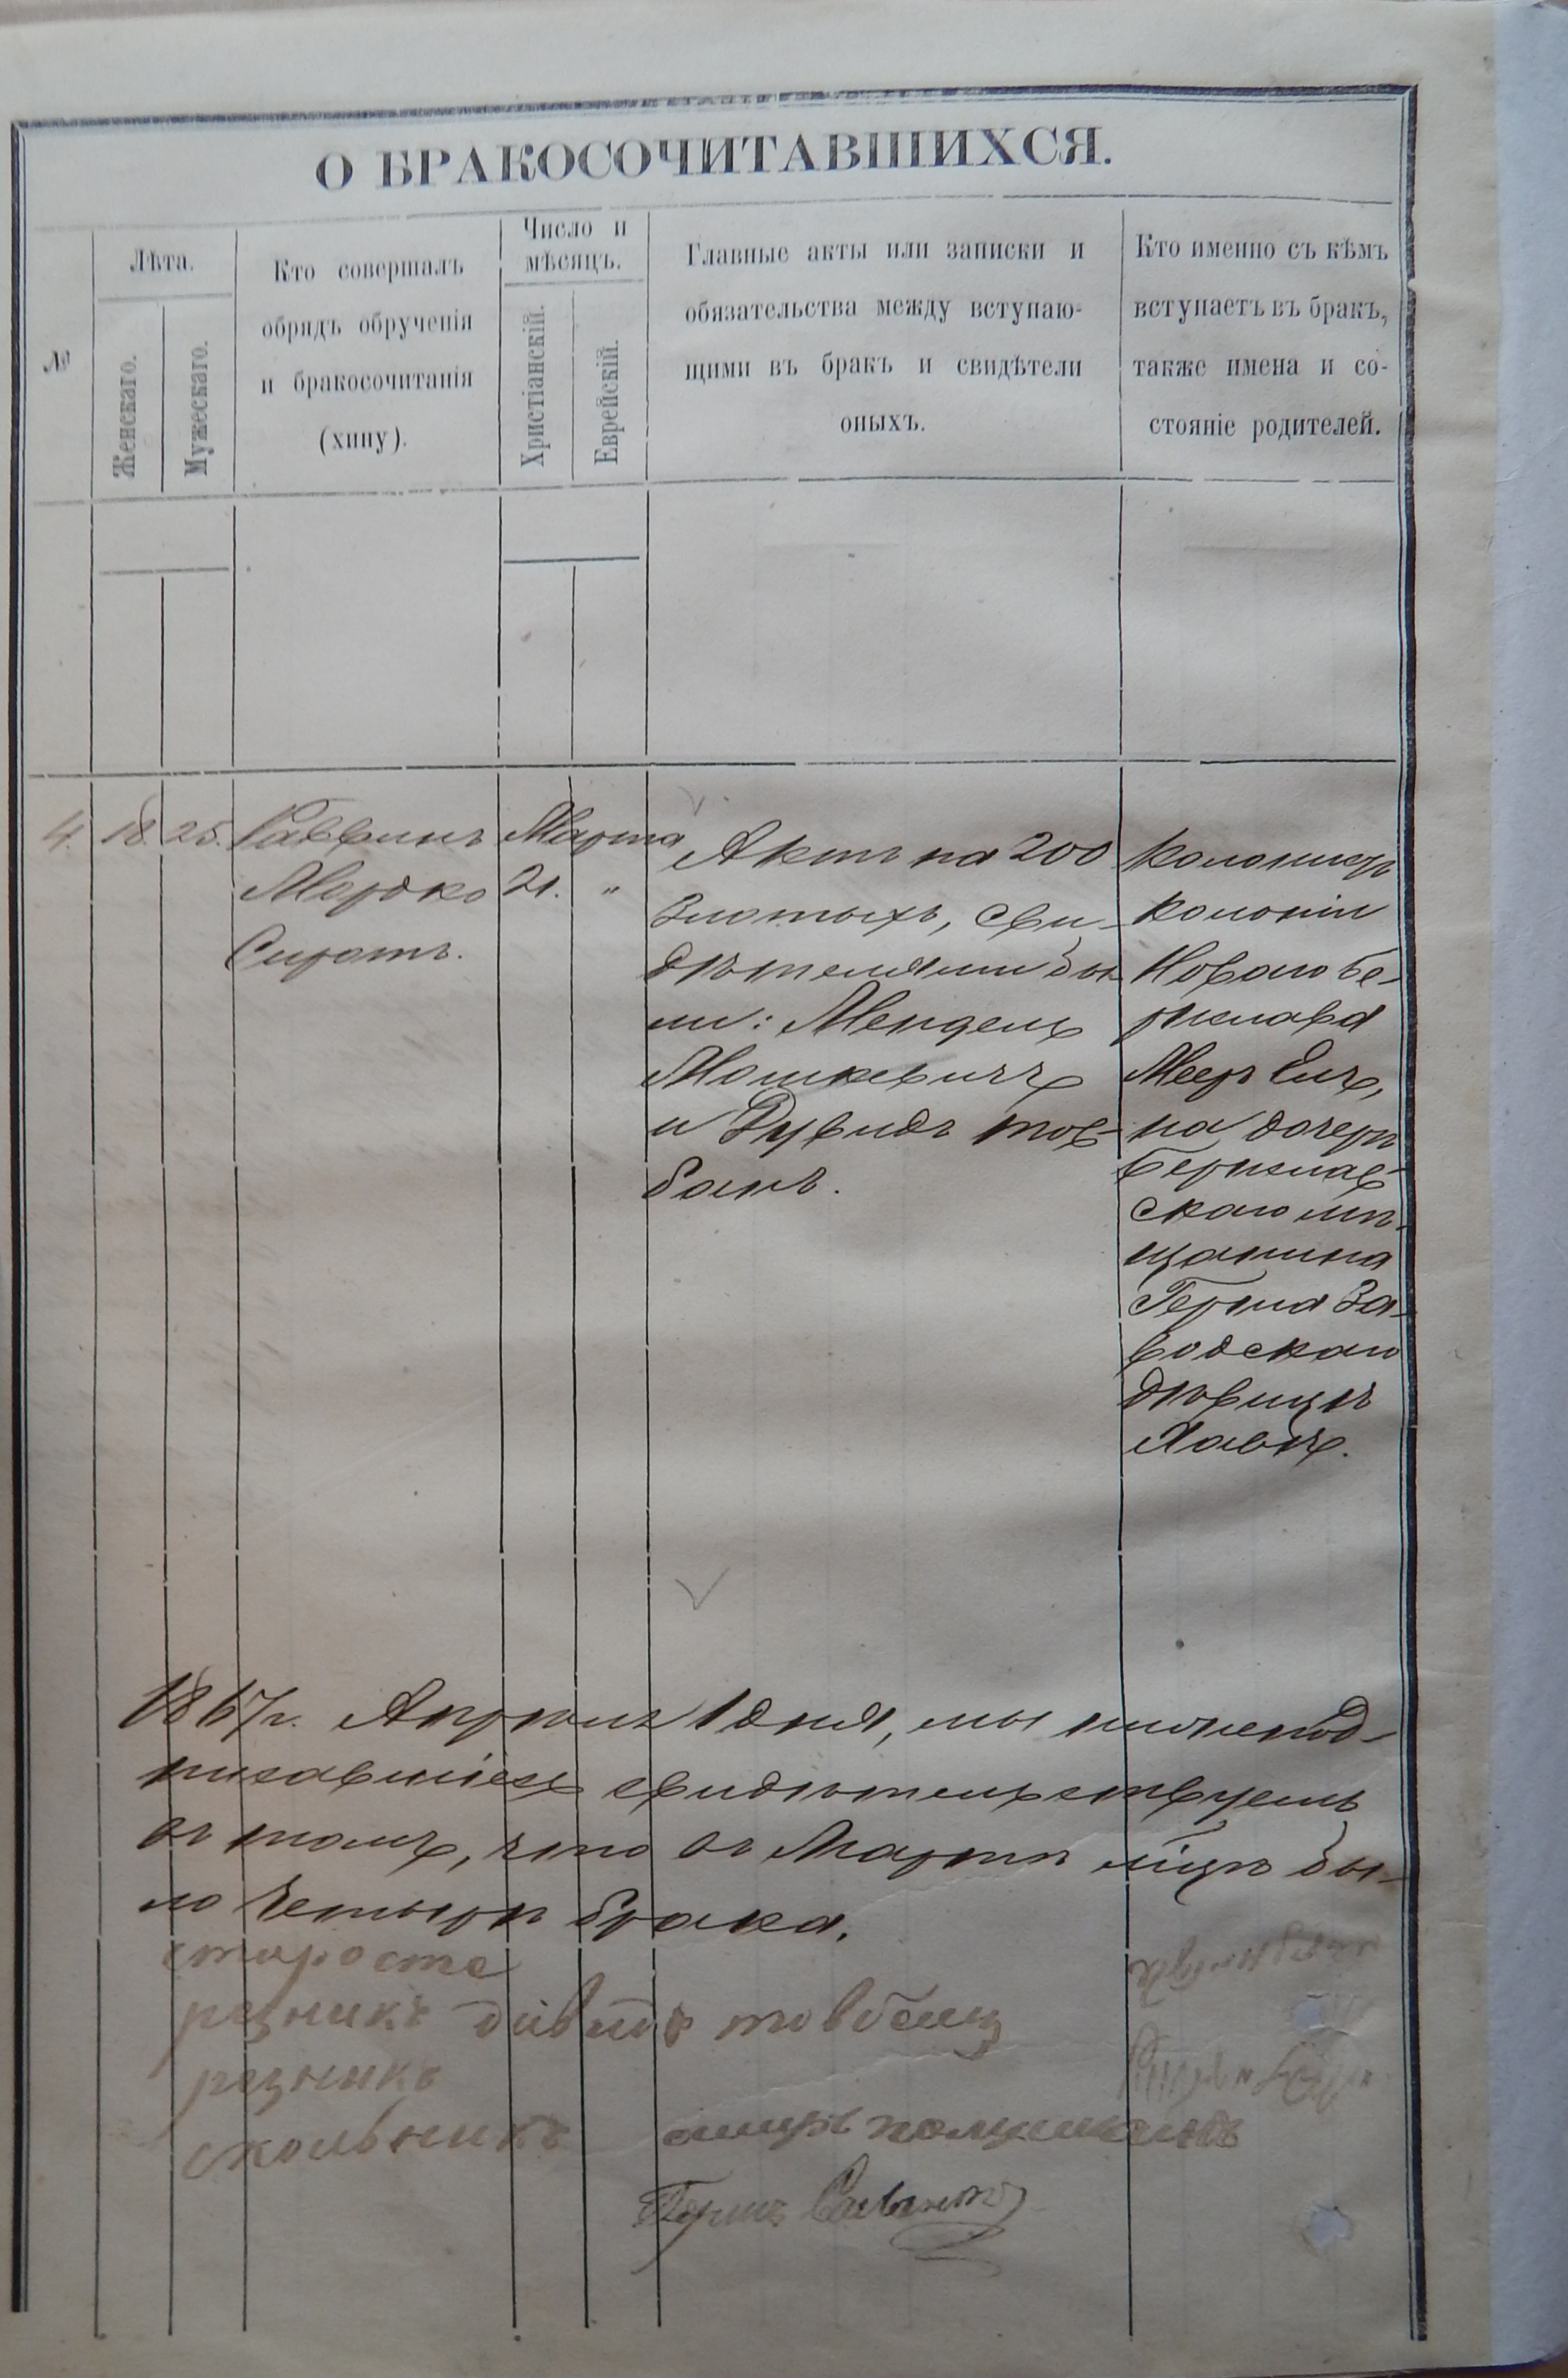 О БРАКОСОЧИТАВШИХСЯ.
№
Лѣта.
Женскаго.
Мужескаго.
Кто совершалъ
обрядъ обрученія
и бракосочитанія
(хипу).
Число и
мѣсяцъ.
Христіанскій.
Еврейскій.
Главные акты или записки и
обязательства между вступаю-
щими въ бракъ и свидѣтели
оныхъ.
Кто именно съ кѣмъ
вступаетъ въ бракъ,
также имена и со-
стояніе родителей.
4.
18.
25.
Раввинъ
Мордко
Сиротъ.
Марта
21. "
Актъ на 200
Злотыхъ, сви-
дѣтелями бы-
ли: Мендель
Мошкевичъ
и Дувидъ Тов-
банъ.
Колонистъ
колоніи
Новаго бе-
рислава
Мееръ
на дочери
Берислав-
скаго мѣ-
щанина
Герша За-
водскаго
дѣвицѣ
Хавѣ.
1867г. Апрѣля 1 дня, мы нижепод-
писавшіеся свидѣтельствуемъ
въ томъ, что въ Мартѣ мѣсцѣ бы-
ло четыре брака.
староста
резникъ
резникъ
школьникъ
Герш